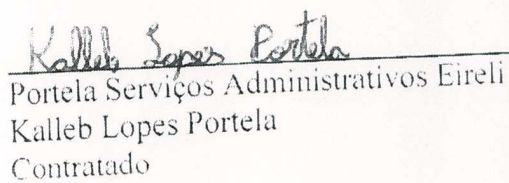 Kalleb Lopes Portela
Portela Serviços Administrativos Eireli
Kalleb Lopes Portela
Contratado